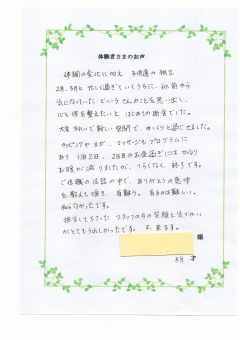 体験者さまのお声
体調の変化に加え 子供達の独立
2月、3月と 忙しく過ぎていくうちに、以前から
気になっていた ピュ・ラさんのことを思い出し、
心と体を整えたいと はじめての断食でした。
大変きれいで新しい空間で、ゆっくりと過ごせました。
ウォーキングやヨガ、マッサージもプログラムに
あり 1日2日、2日目のお昼過ぎには かなり
お腹が減りましたが、つらくなく、終了です。
ご住職の法話の中で、ありがとうの意味
を教えて頂き、有難う。有るのは難しい。
知らなかったです。
担当して下さった スタッフの方の笑顔と気づかい
がとてもうれしかったです。 又、来ます。
様
才